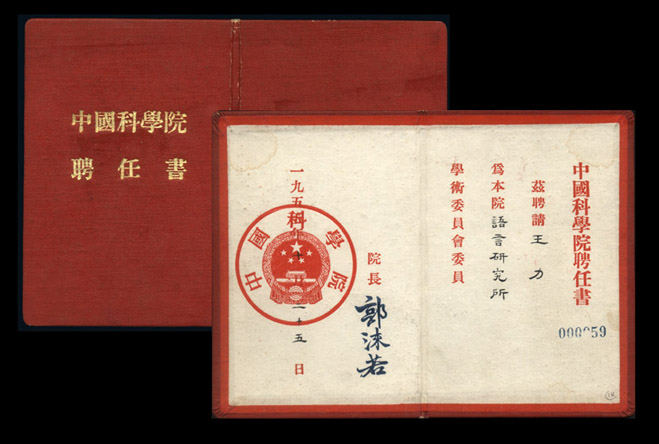 中國科學院
聘任書
中國科學院聘任書
000059
茲聘請王力
爲本院語言研究所
學術委員會委員
院長
郭沫若
一九五 二十五日
中國科學院